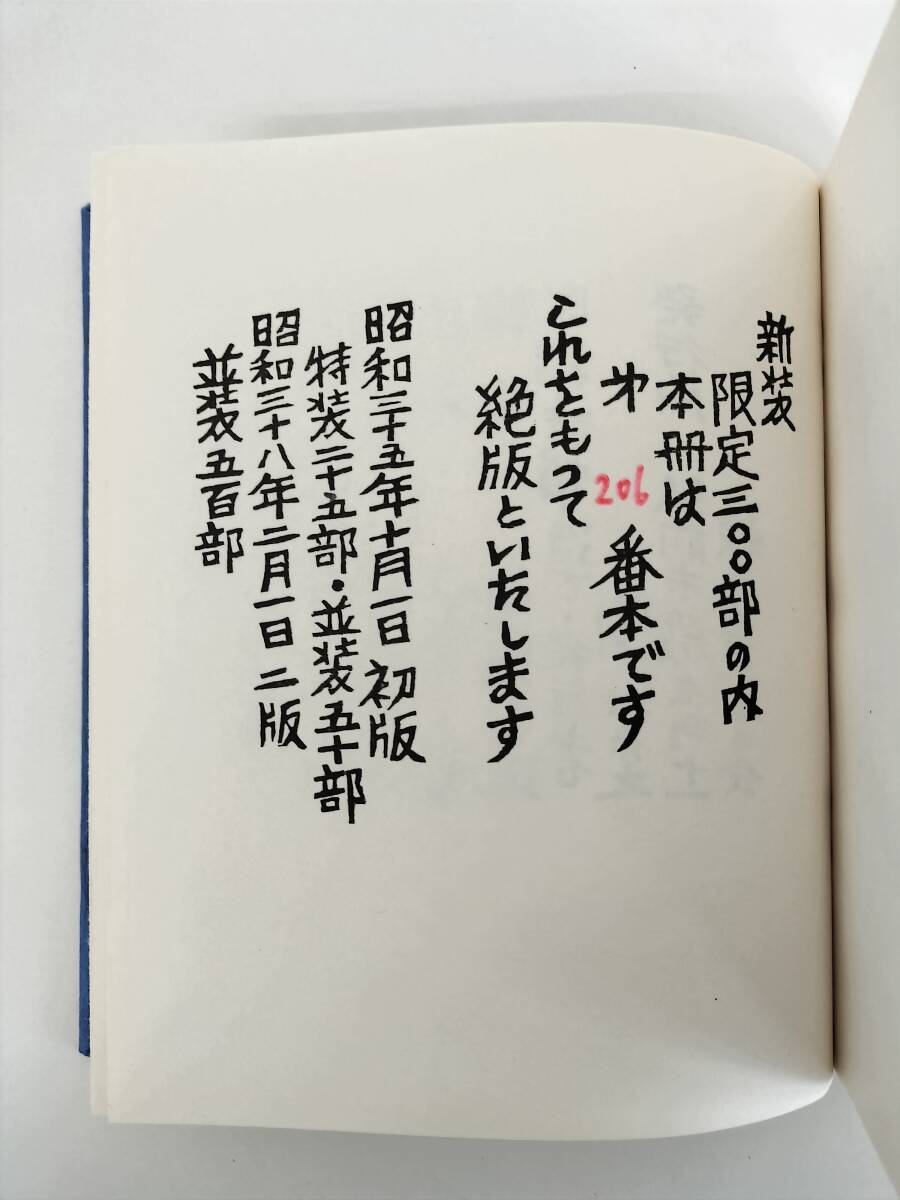 新装
限定三〇〇部の内
本冊は
㐧 206 番本です
これをもって
絶版といたします
昭和三十五年十月一日 初版
特装二十五部・並装五十部
昭和三十八年二月一日 二版
並装五百部